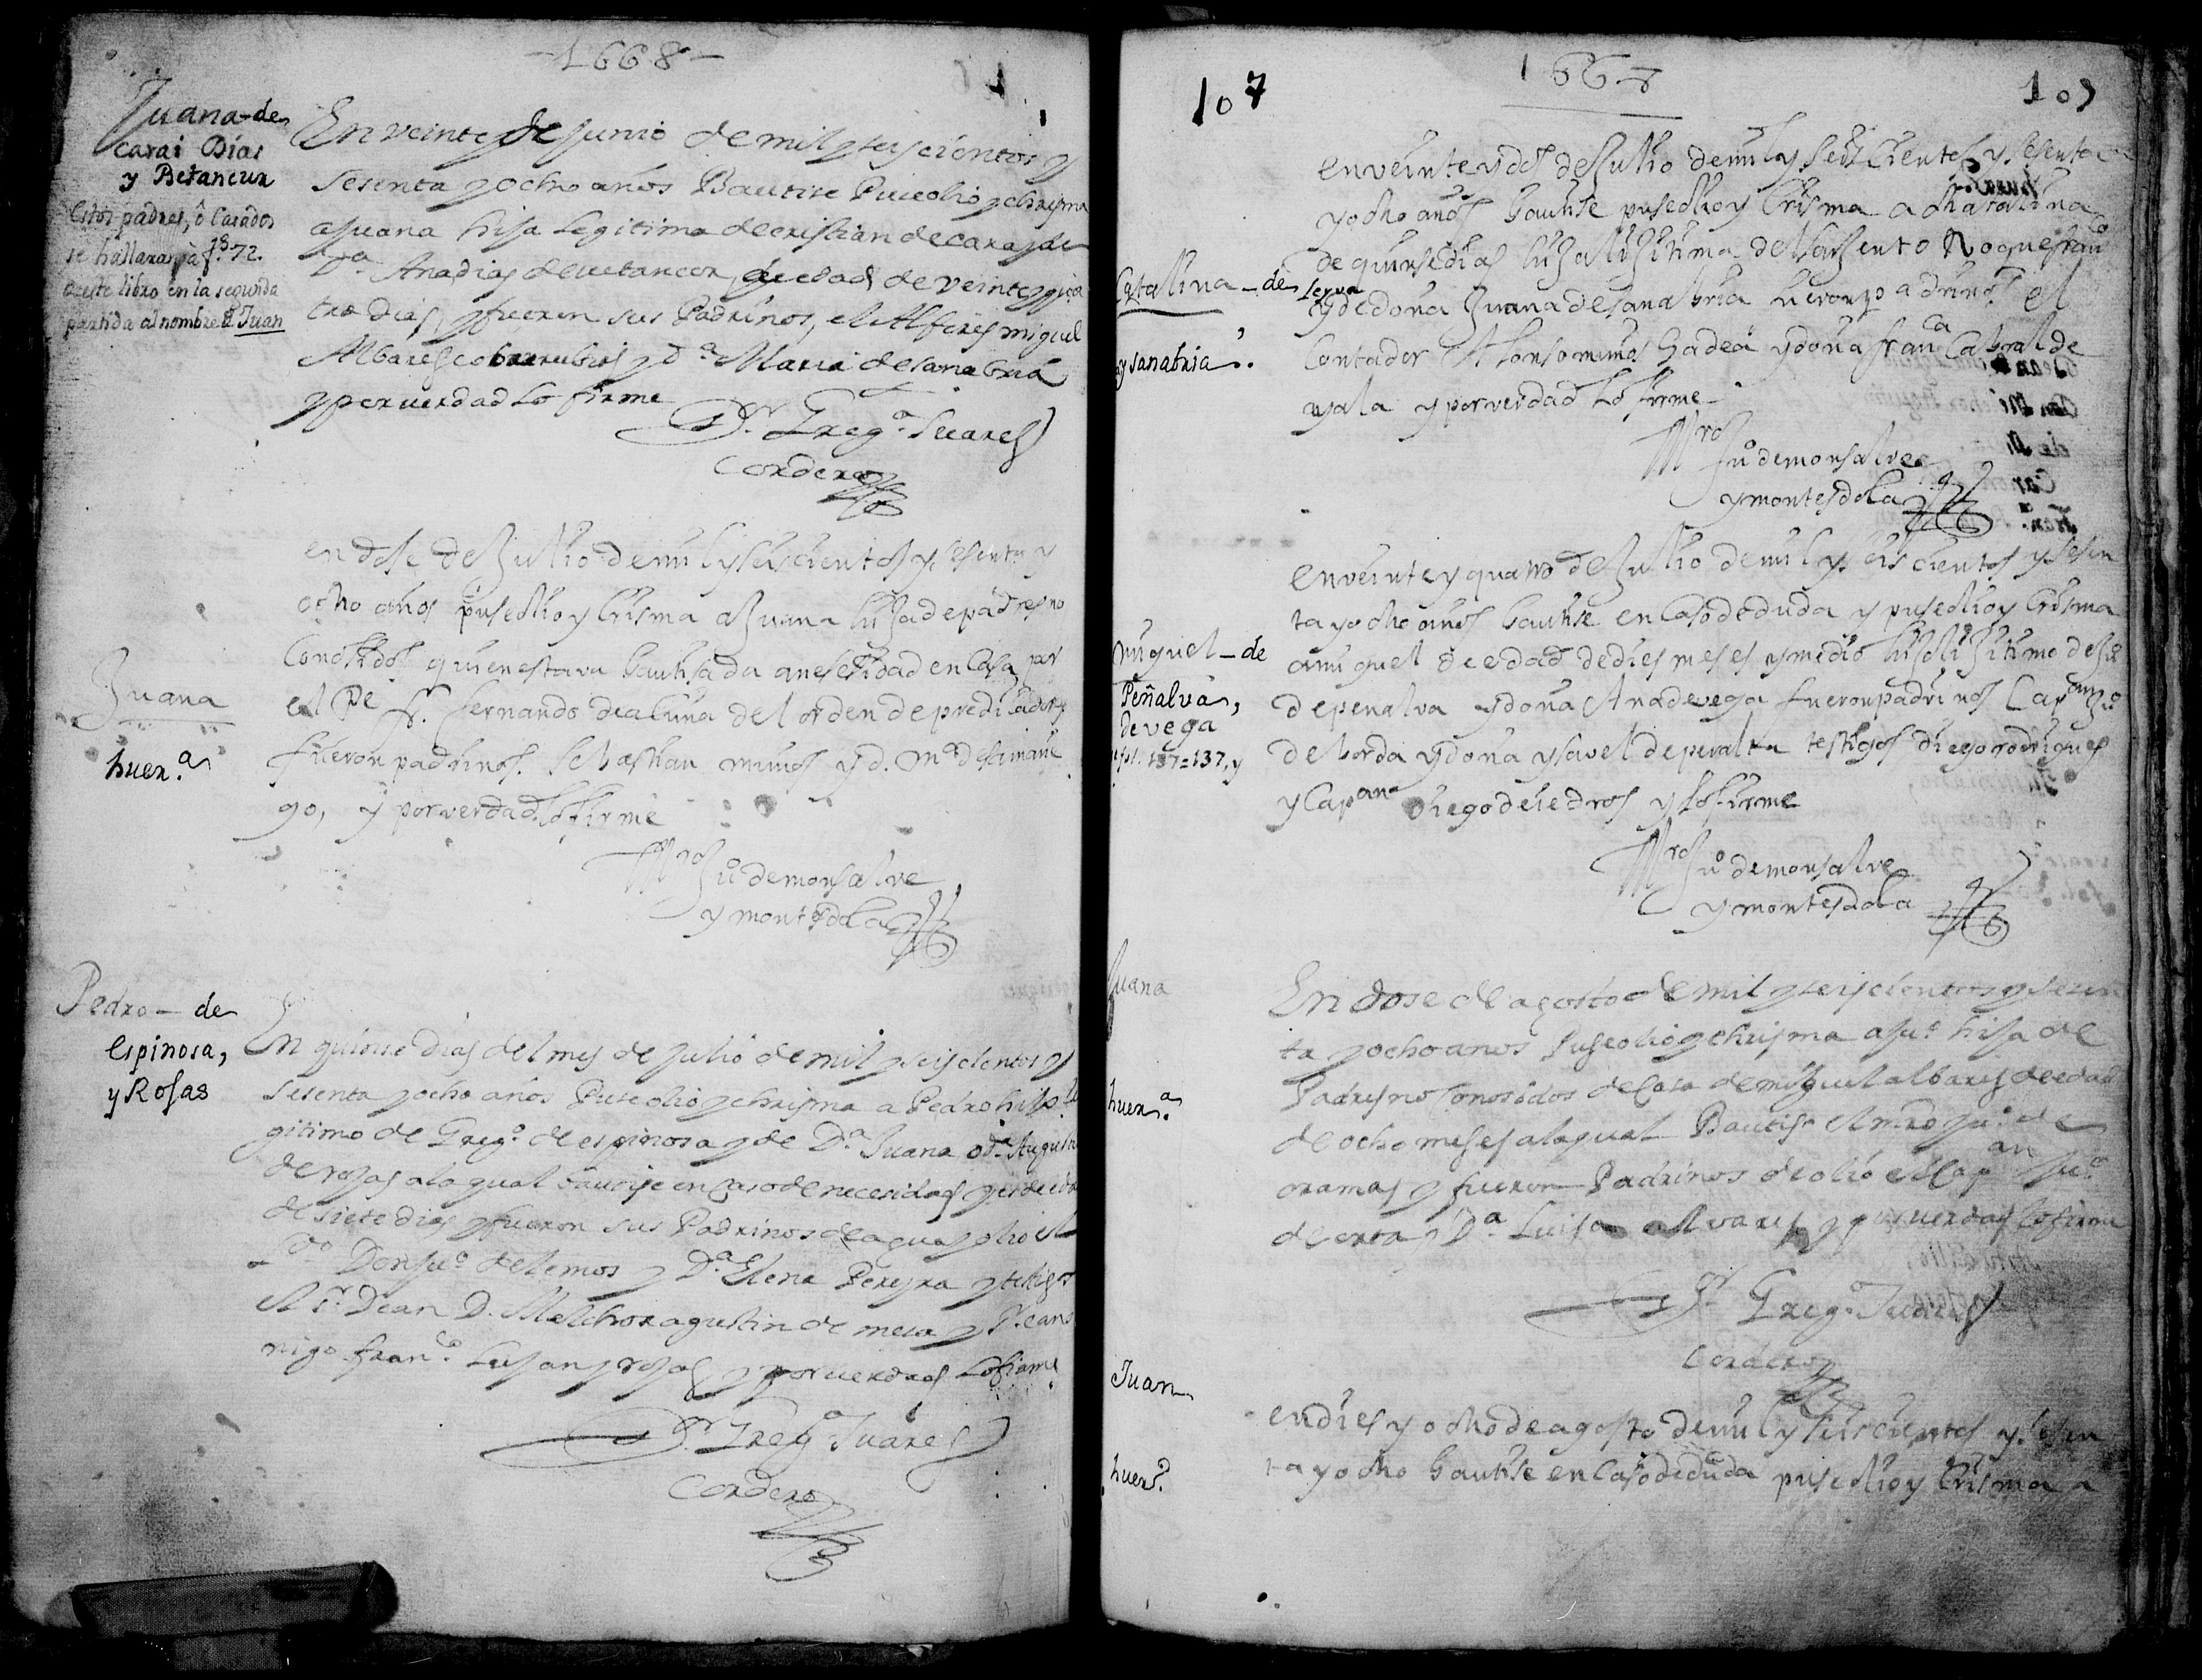 -1668-
Juana-de
carai Dias
y Betancur
Estos padres, ô Casados
se hallaran à f.s 72.
de este libro en la segunda
partida al nombre d Juan
En veinte de Junio de mil y seiscientos y
sesenta y ocho años Bautise Puse olio y chrisma
a Juana hija legitima de cristian de caray de
Da Ana dias de uetancor, de edad de veinte y qua
tro dias, y fueron sus Padrinos, el Alferes miguel
Albares cobarrubias y da Maria de sanabria
y por verdad lo firme
Dr. Grego Suares
Cordero
Juana
huera
en dose de Julio de mil y seiscientos y sesenta y
ocho años puse olio y Crisma a Juana hija de padres no
Conosidos quien estava bautisada a nesesidad en Casa por
el Pe fr. fernando de acuña del orden de predicadores
fueron padrinos Sebastian muños y d. Ma de samanie
go, y por verdad lo firme
Mro Juo de monsalve
y montesdoca
Pedro - de
Espinosa,
y Rosas
En quinse dias del mes de Julio de mil y seiscientos y
sesenta y ocho años Puse olio y chrisma a Pedro hijo le
gitimo de Grego de espinosa y de Da Juana o da Augustina
de rojas a la qual bautise en caso de necesidad y es de edad
de siete dias y fueron sus Padrinos de agua y olio el
Ldo Don Juo de lemos y Da Elena Pereyra y testigos
el Sr. Dean D. Melchor agustin de mesa y el cano
nigo franco Lujan y rojas y por verdad lo firme
Dr. Grego Juares
Cordero
107
1668
107
Catalina - de
Serna
y sanabria.
en veinte y dos de Julio de mil y seis Cientos y sesenta
y ocho años bautise puse olio y Crisma a Chatalina
de quinse dias hija lijitima del sarjento Roque franco
y de doña Juana de sanabria fueron padrinos el
Contador Alonso muños Gadea y doña franca Cabral de
ayala y por verdad lo firme
Mro Juo de monsalve
y montesdoca
Miguel - de
Peñalva,
de vega
en veinte y quatro de Julio de mil y seis cientos y sesen
ta y ocho años bautise en Caso de duda y puse olio y Crisma
a miguel de edad de dies meses y medio hijo lijitimo de Juo
de penalva y doña Ana de vega fueron padrinos Capan Juo
de borda y doña ysavel de peralta testigos diego rodrigues
y Capan diego de iedros y lo firme
Mro Juo de monsalve
y montesdoca
Juana
huera
En dose de agosto de mil y seiscientos y sesen
ta y ocho anos Puse olio y chrisma a Jua hija de
Padres no Conosidos de Casa de miguel albares de edad
de ocho meses a la qual Bautiso el mro Juo de
oramas y fueron Padrinos de olio el Capan Juo
de orta y Da Luisa alvares y por verdad lo firme
Dr. Grego Juares
Cordero
Juan
huero
en dies y ocho de agosto de mil y seiscientos y sesen
ta y ocho bautise en Caso de duda puse olio y Crisma a